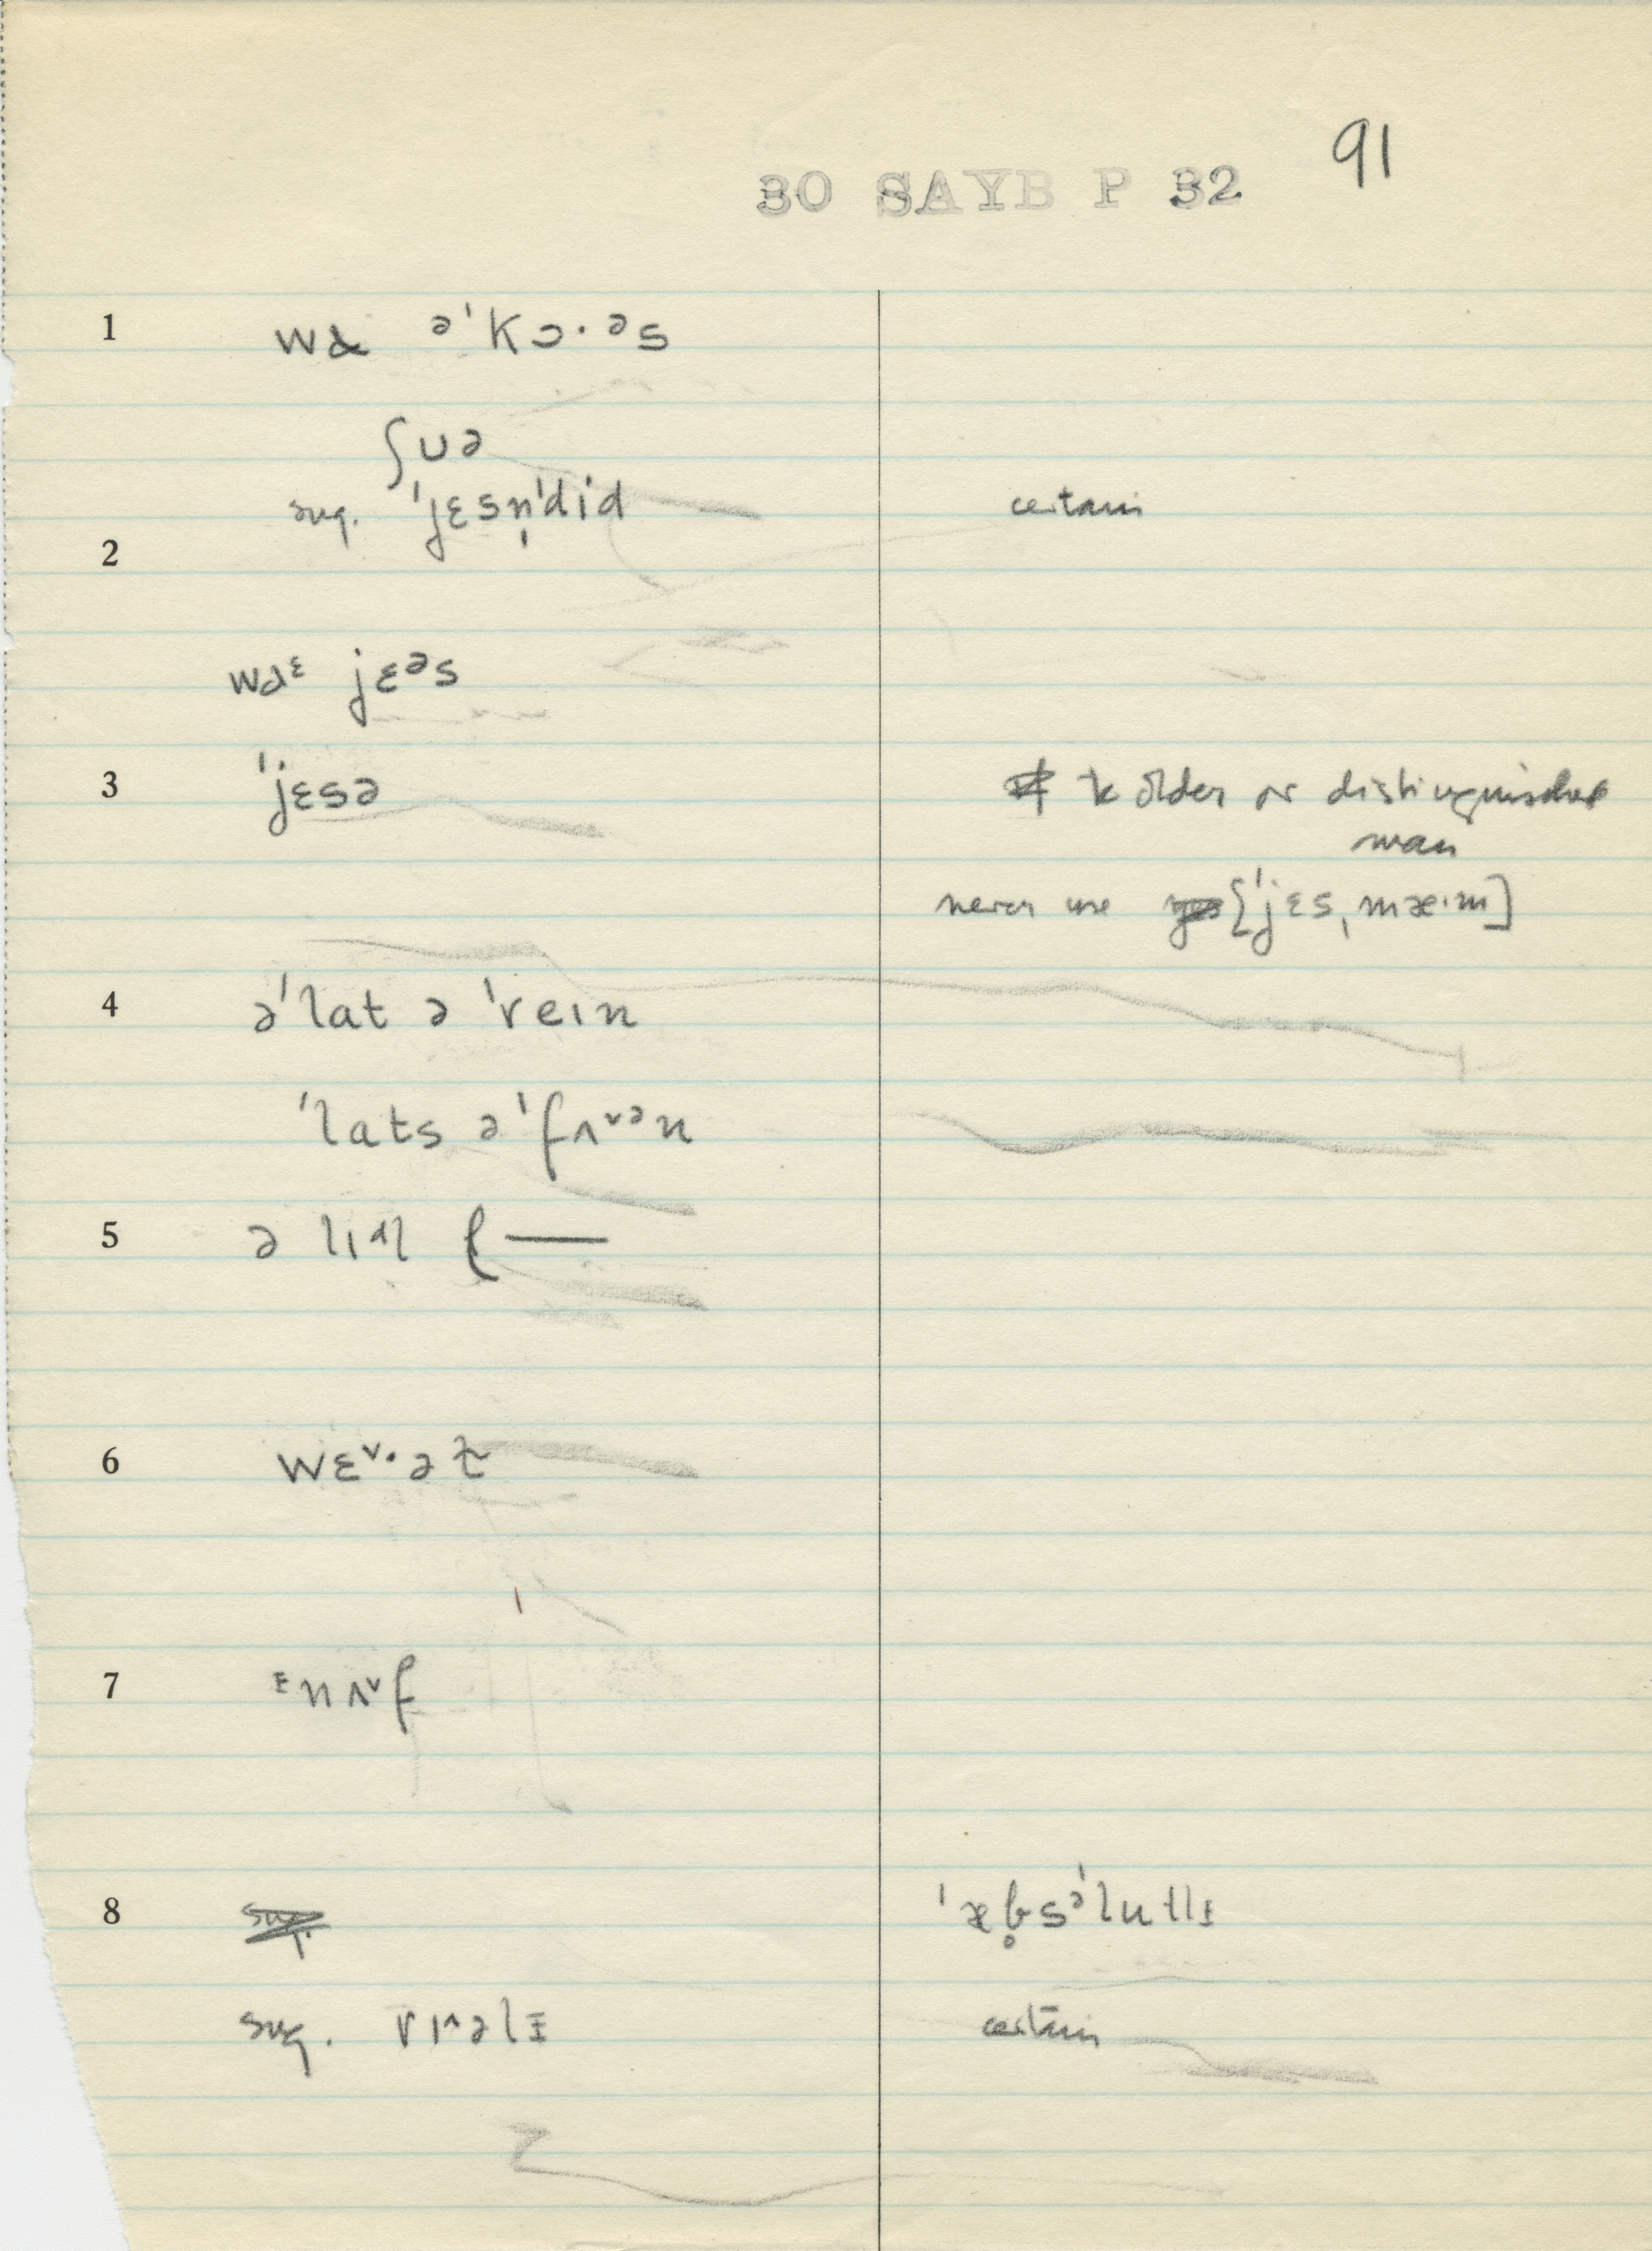 91
30 SAYB P 32
1 wɑ ə'kɔ·əs
ʃʊə
sug. 'jɛsn̩'did certain
2
wɑᵋ jɛᵊs
3 'jɛsə to older or distinguished
man
never use ['jɛs, mæ·m]
4 ə'lat ə 'reɪn
'lats ə 'fʌ˅ᵊn
5 ə lɪᵊl f—
6 wɛ˅·ət
7 ᵻnʌ˅f
8 'æb̥sə'lutlᵻ
sug. rɪ^əlᵻ certain